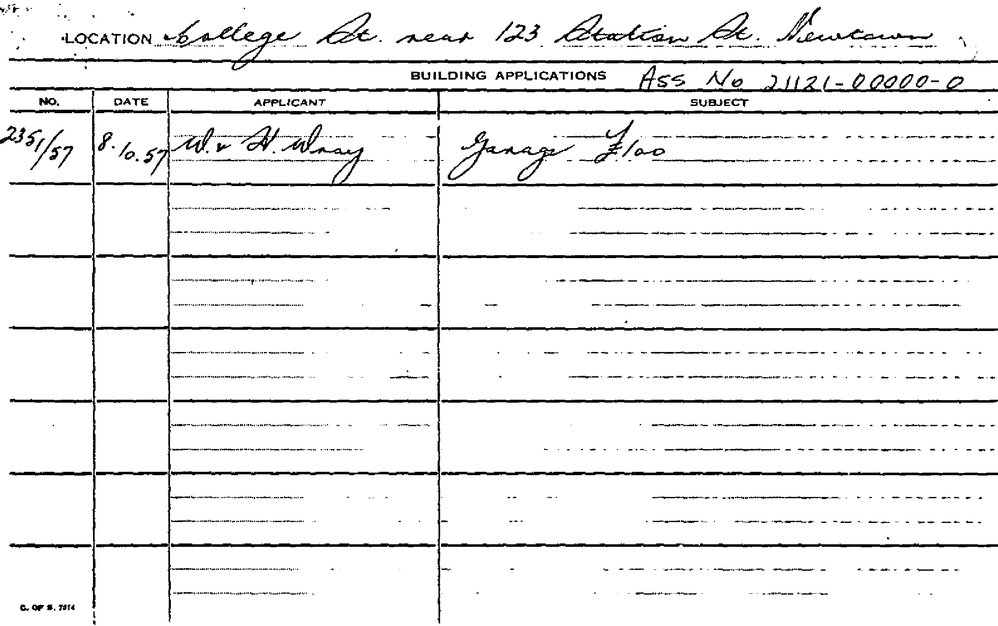 LOCATION College St. rear 123 Station St. Newtown
BUILDING APPLICATIONS Ass No 21121-00000-0
NO. DATE APPLICANT SUBJECT
2351/57 8.10.57 W. & H. Wray Garage £100
C. OF S. 7514